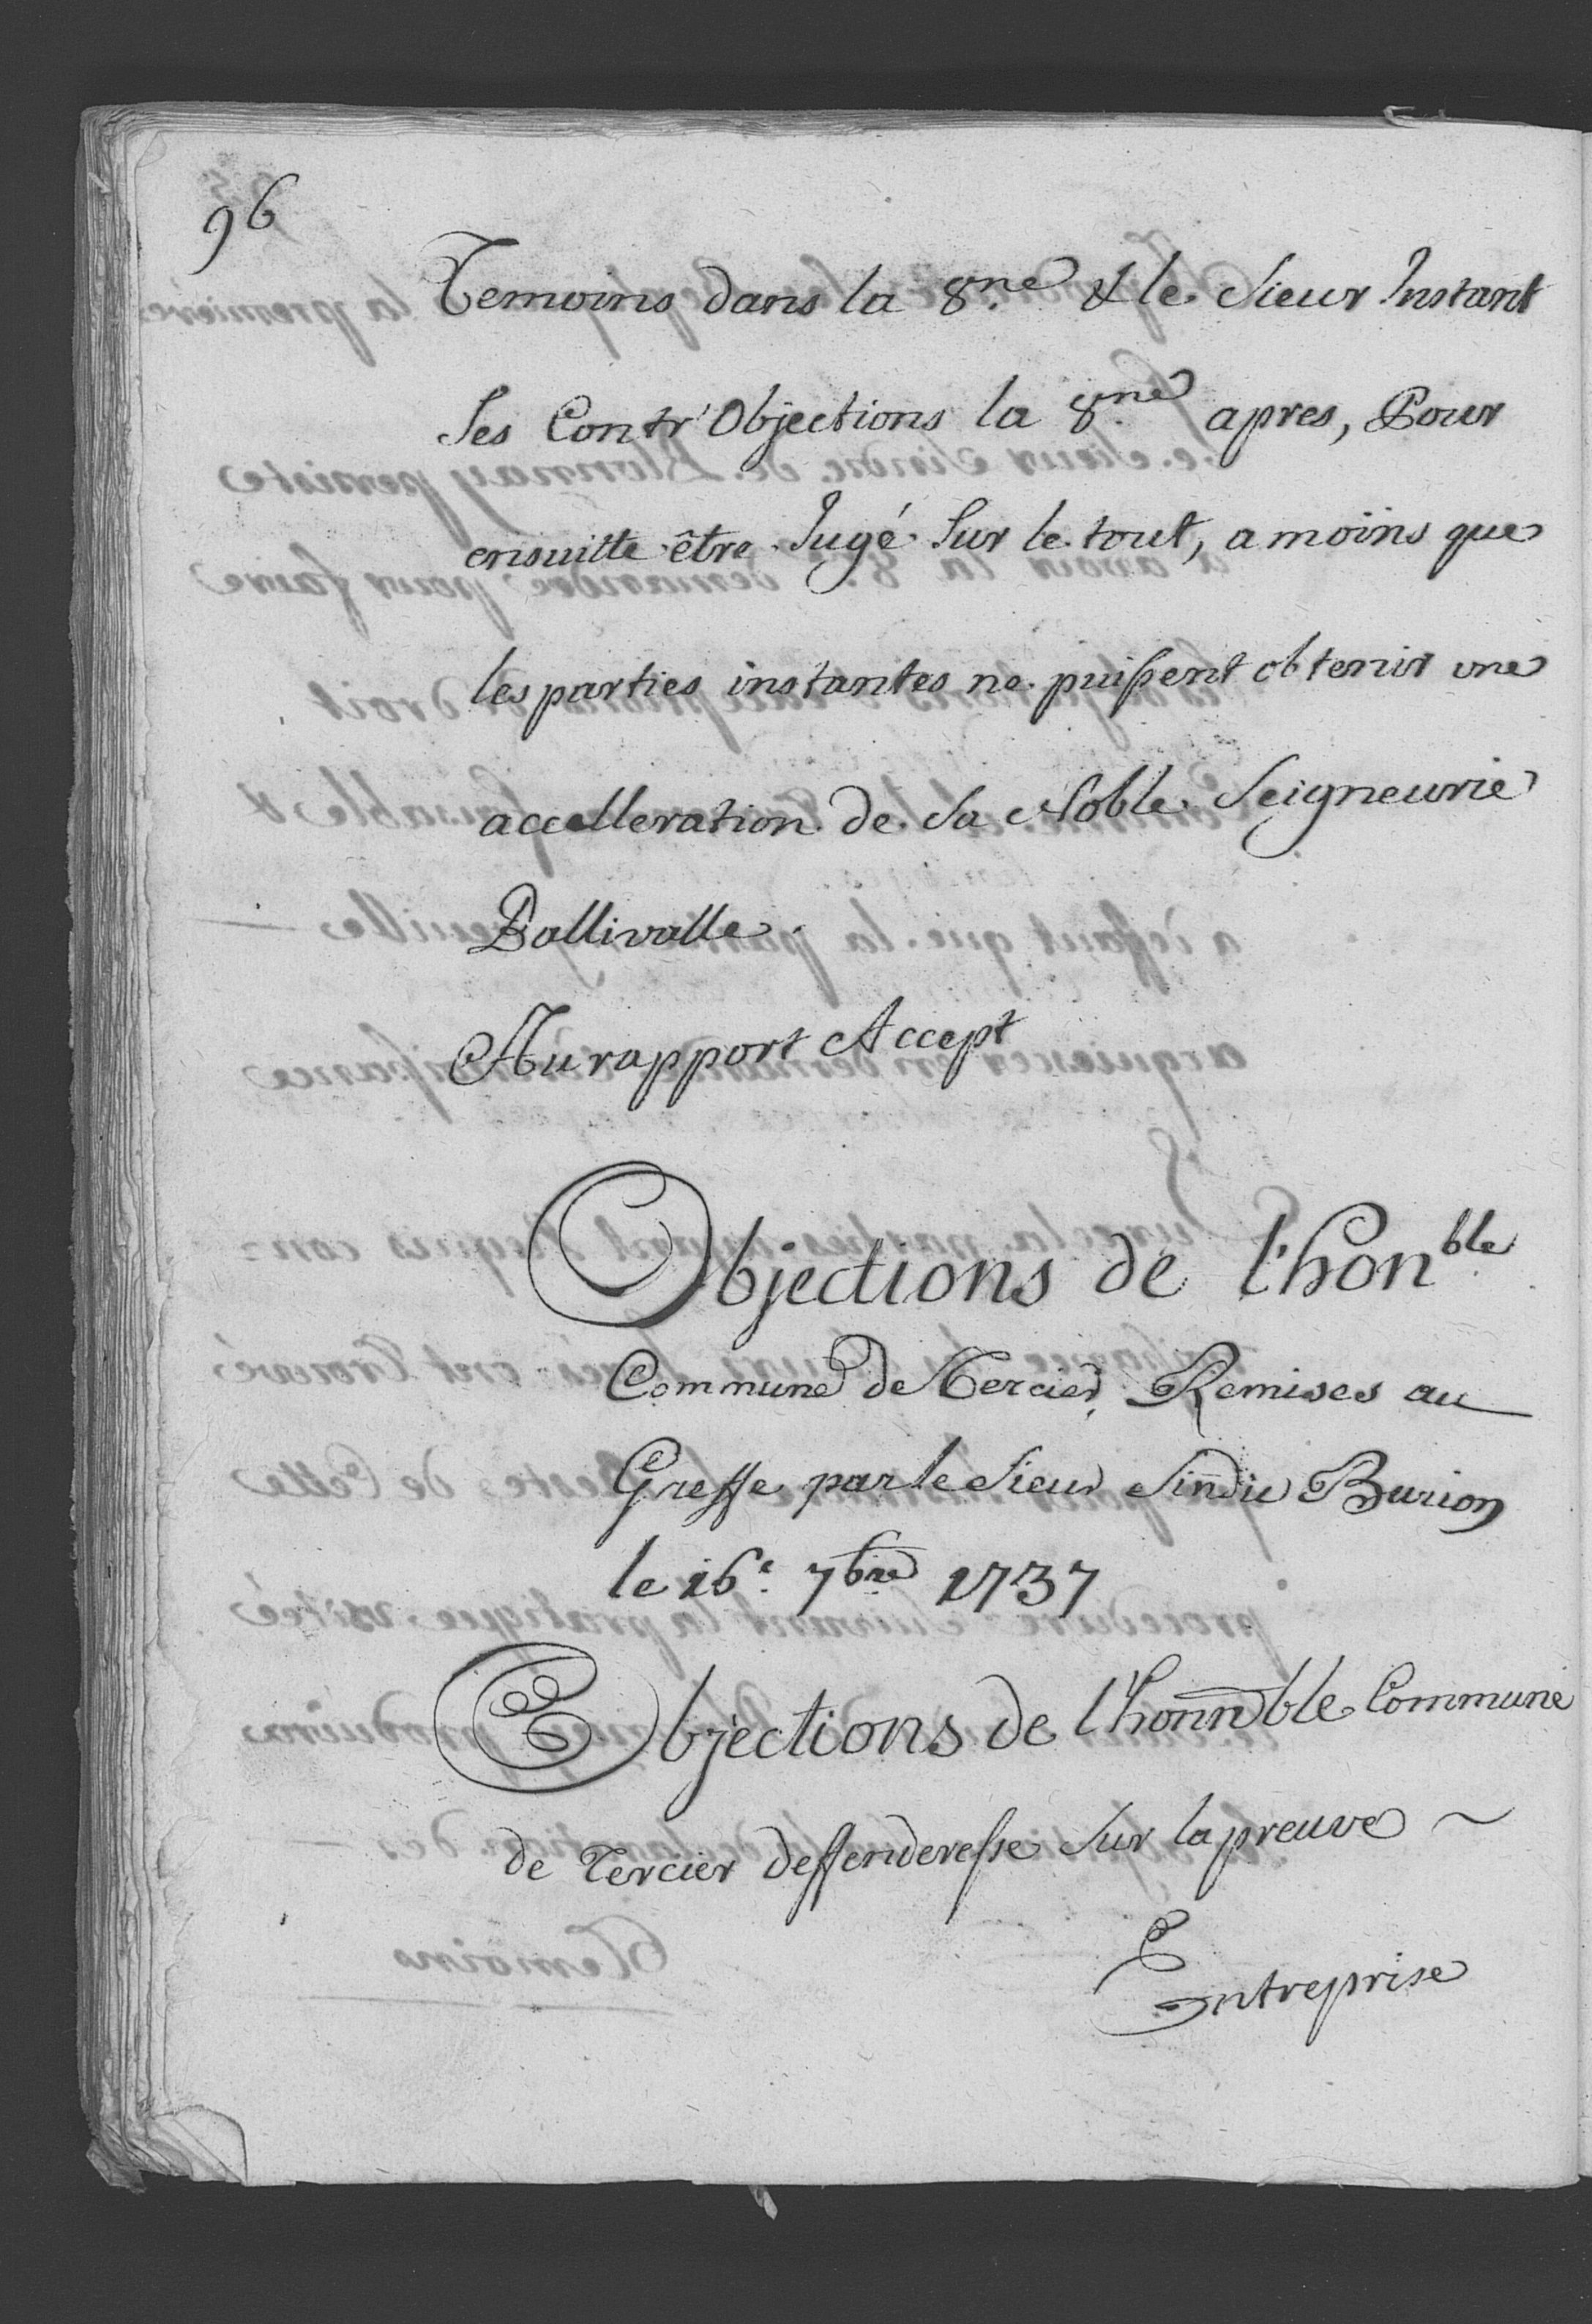 96
Temoins dans la 8.ne & le Sieur Instant
Ses Contr'Objections la 8.ne apres, Pour
ensuitte être Jugé Sur le tout, a moins que
les parties instantes ne puissent obtenir une
accelleration de Sa Noble Seigneurie
Ballivalle.
Au rapport Accept
Objections de l'hon.ble
Commune de Tercier, Remises au
Greffe par le Sieur Sindic Burion
le 16.e 7bre 1737
Objections de l'honnble Commune
de Tercier deffenderesse Sur la preuve ~
Entreprise